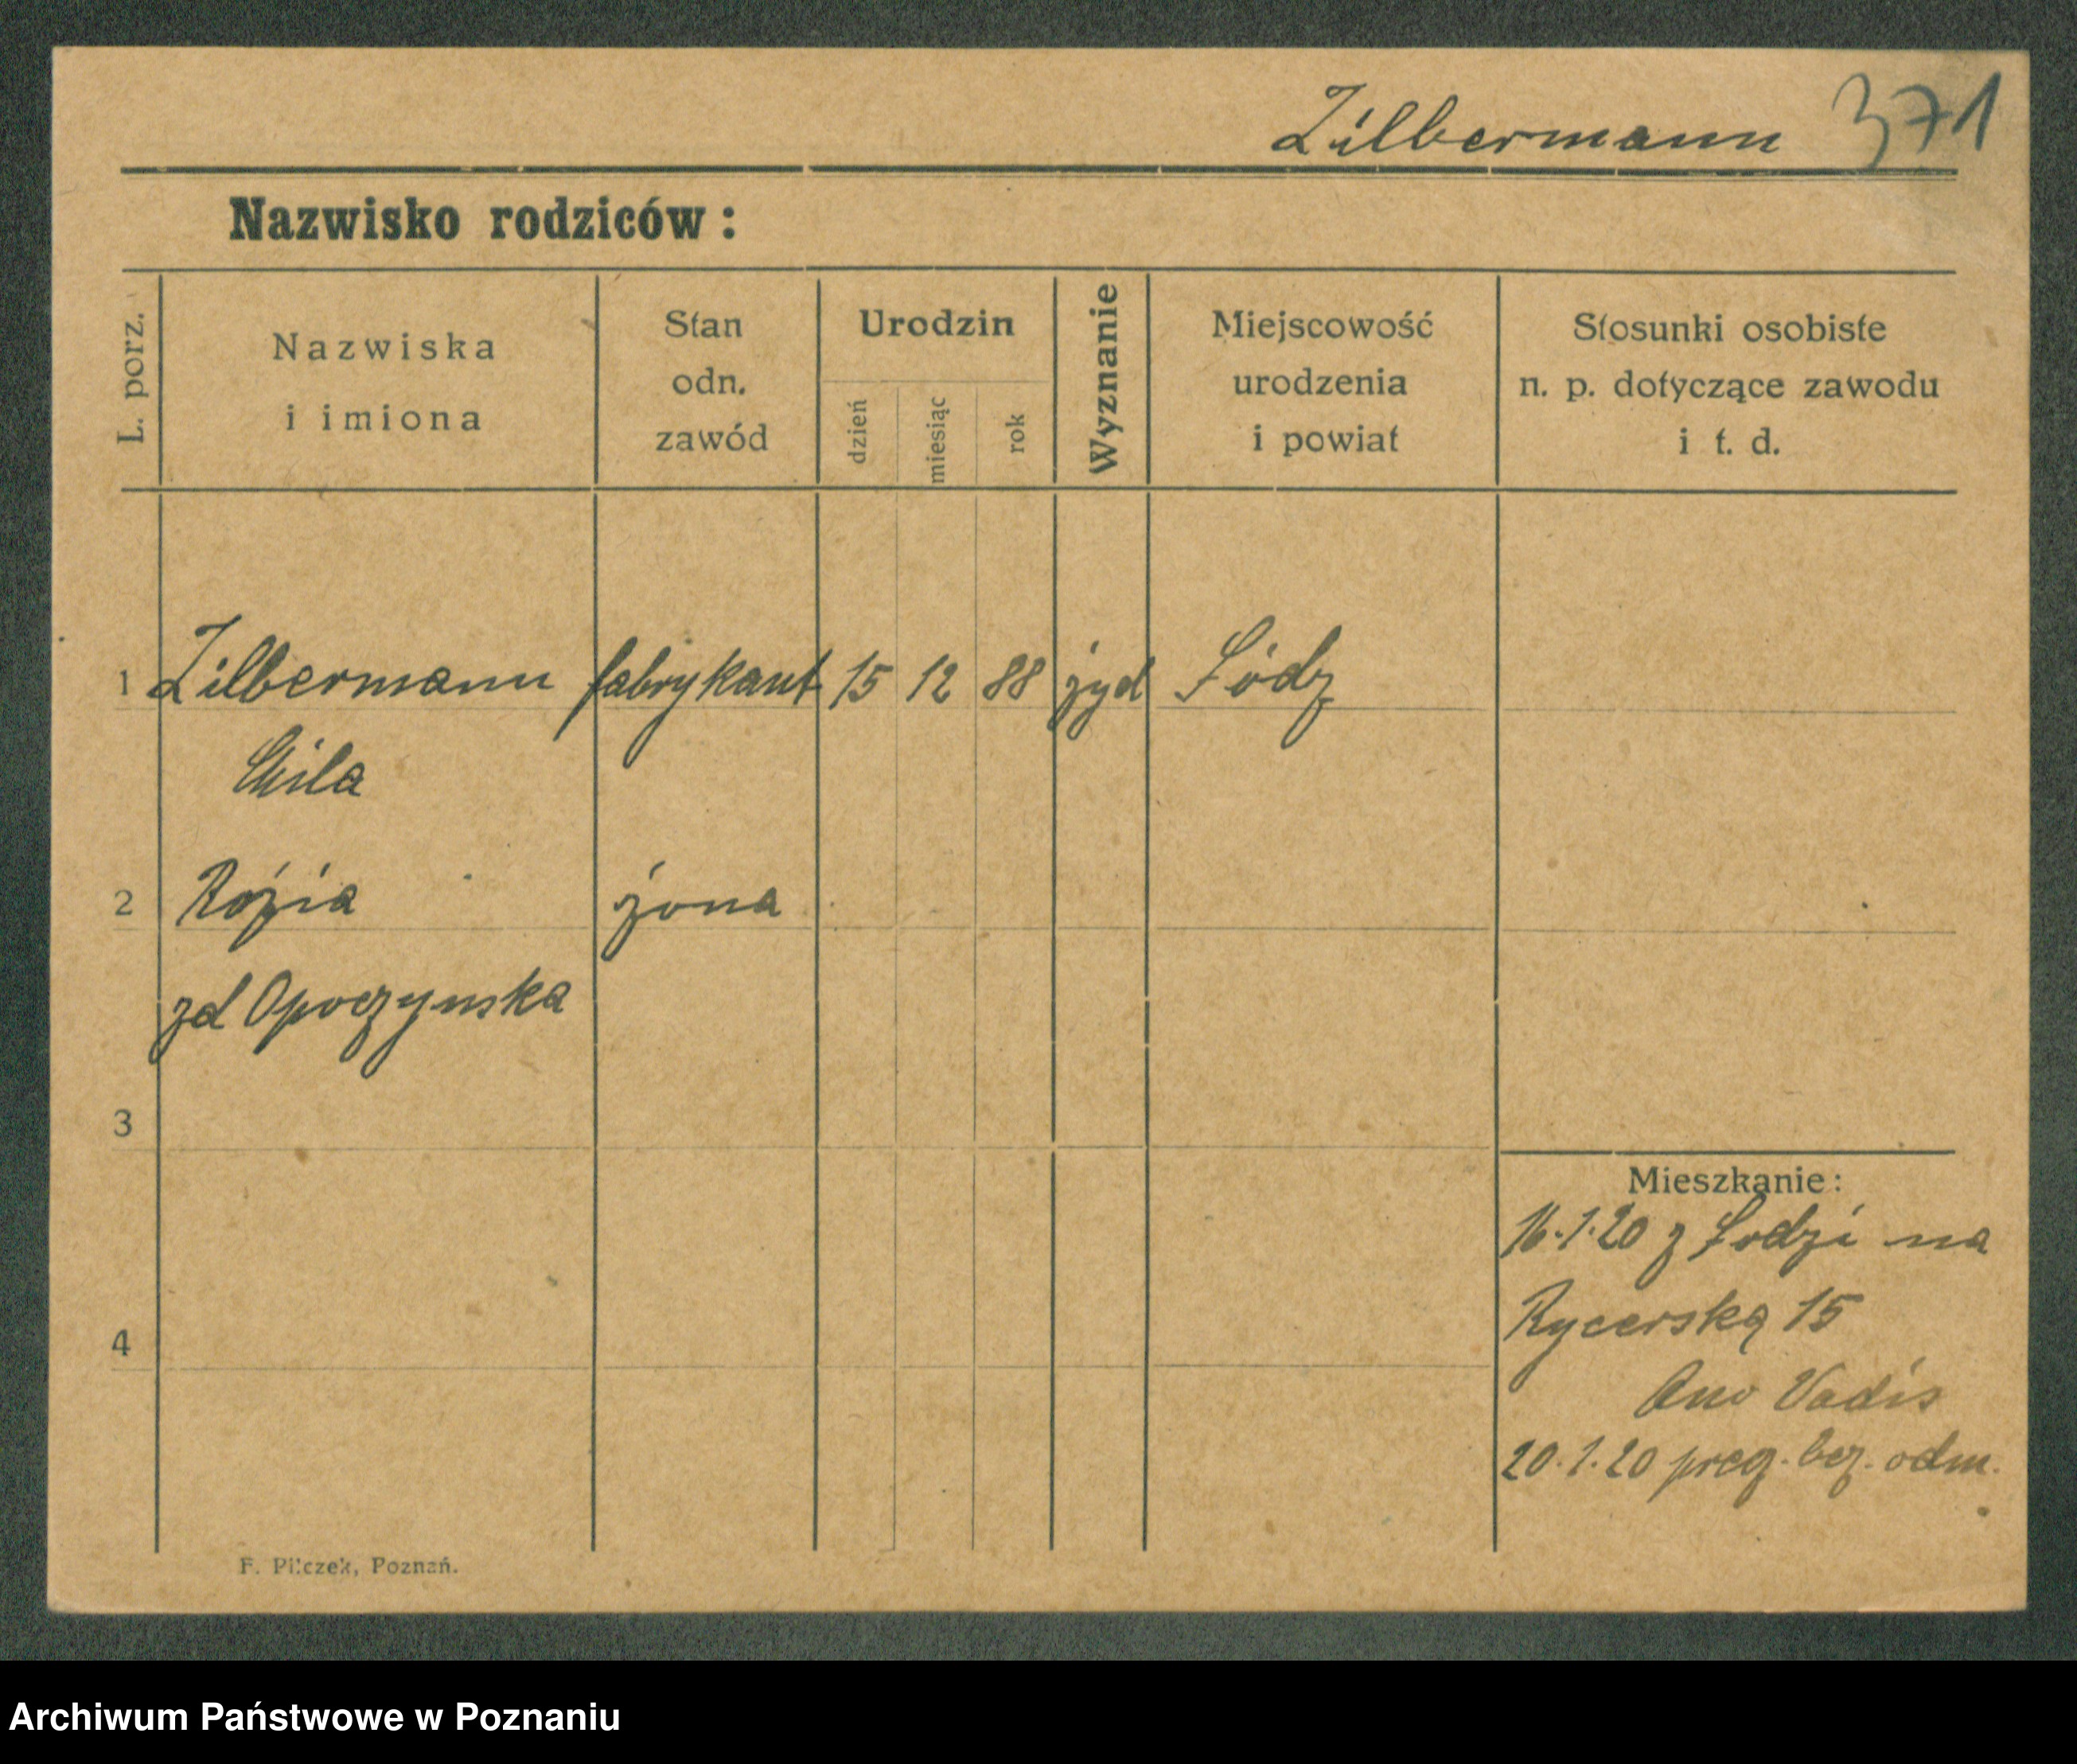 Zilbermann 371
Nazwisko rodziców:
L. porz.
Nazwiska
i imiona
Stan
odn.
zawód
Urodzin
dzień
miesiąc
rok
Wyznanie
Miejscowość
urodzenia
i powiat
Stosunki osobiste
n. p. dotyczące zawodu
i t. d.
1 Zilbermann fabrykant 15 12 88 żyd Łódz
Chila
2 Rózia żona
zd Opoczynska
3
Mieszkanie:
16.1.20 z Łodzi na
4
Rycerską 15
Quo Vadis
20.1.20 prec. bez. odm.
F. Pilczek, Poznań.
Archiwum Państwowe w Poznaniu